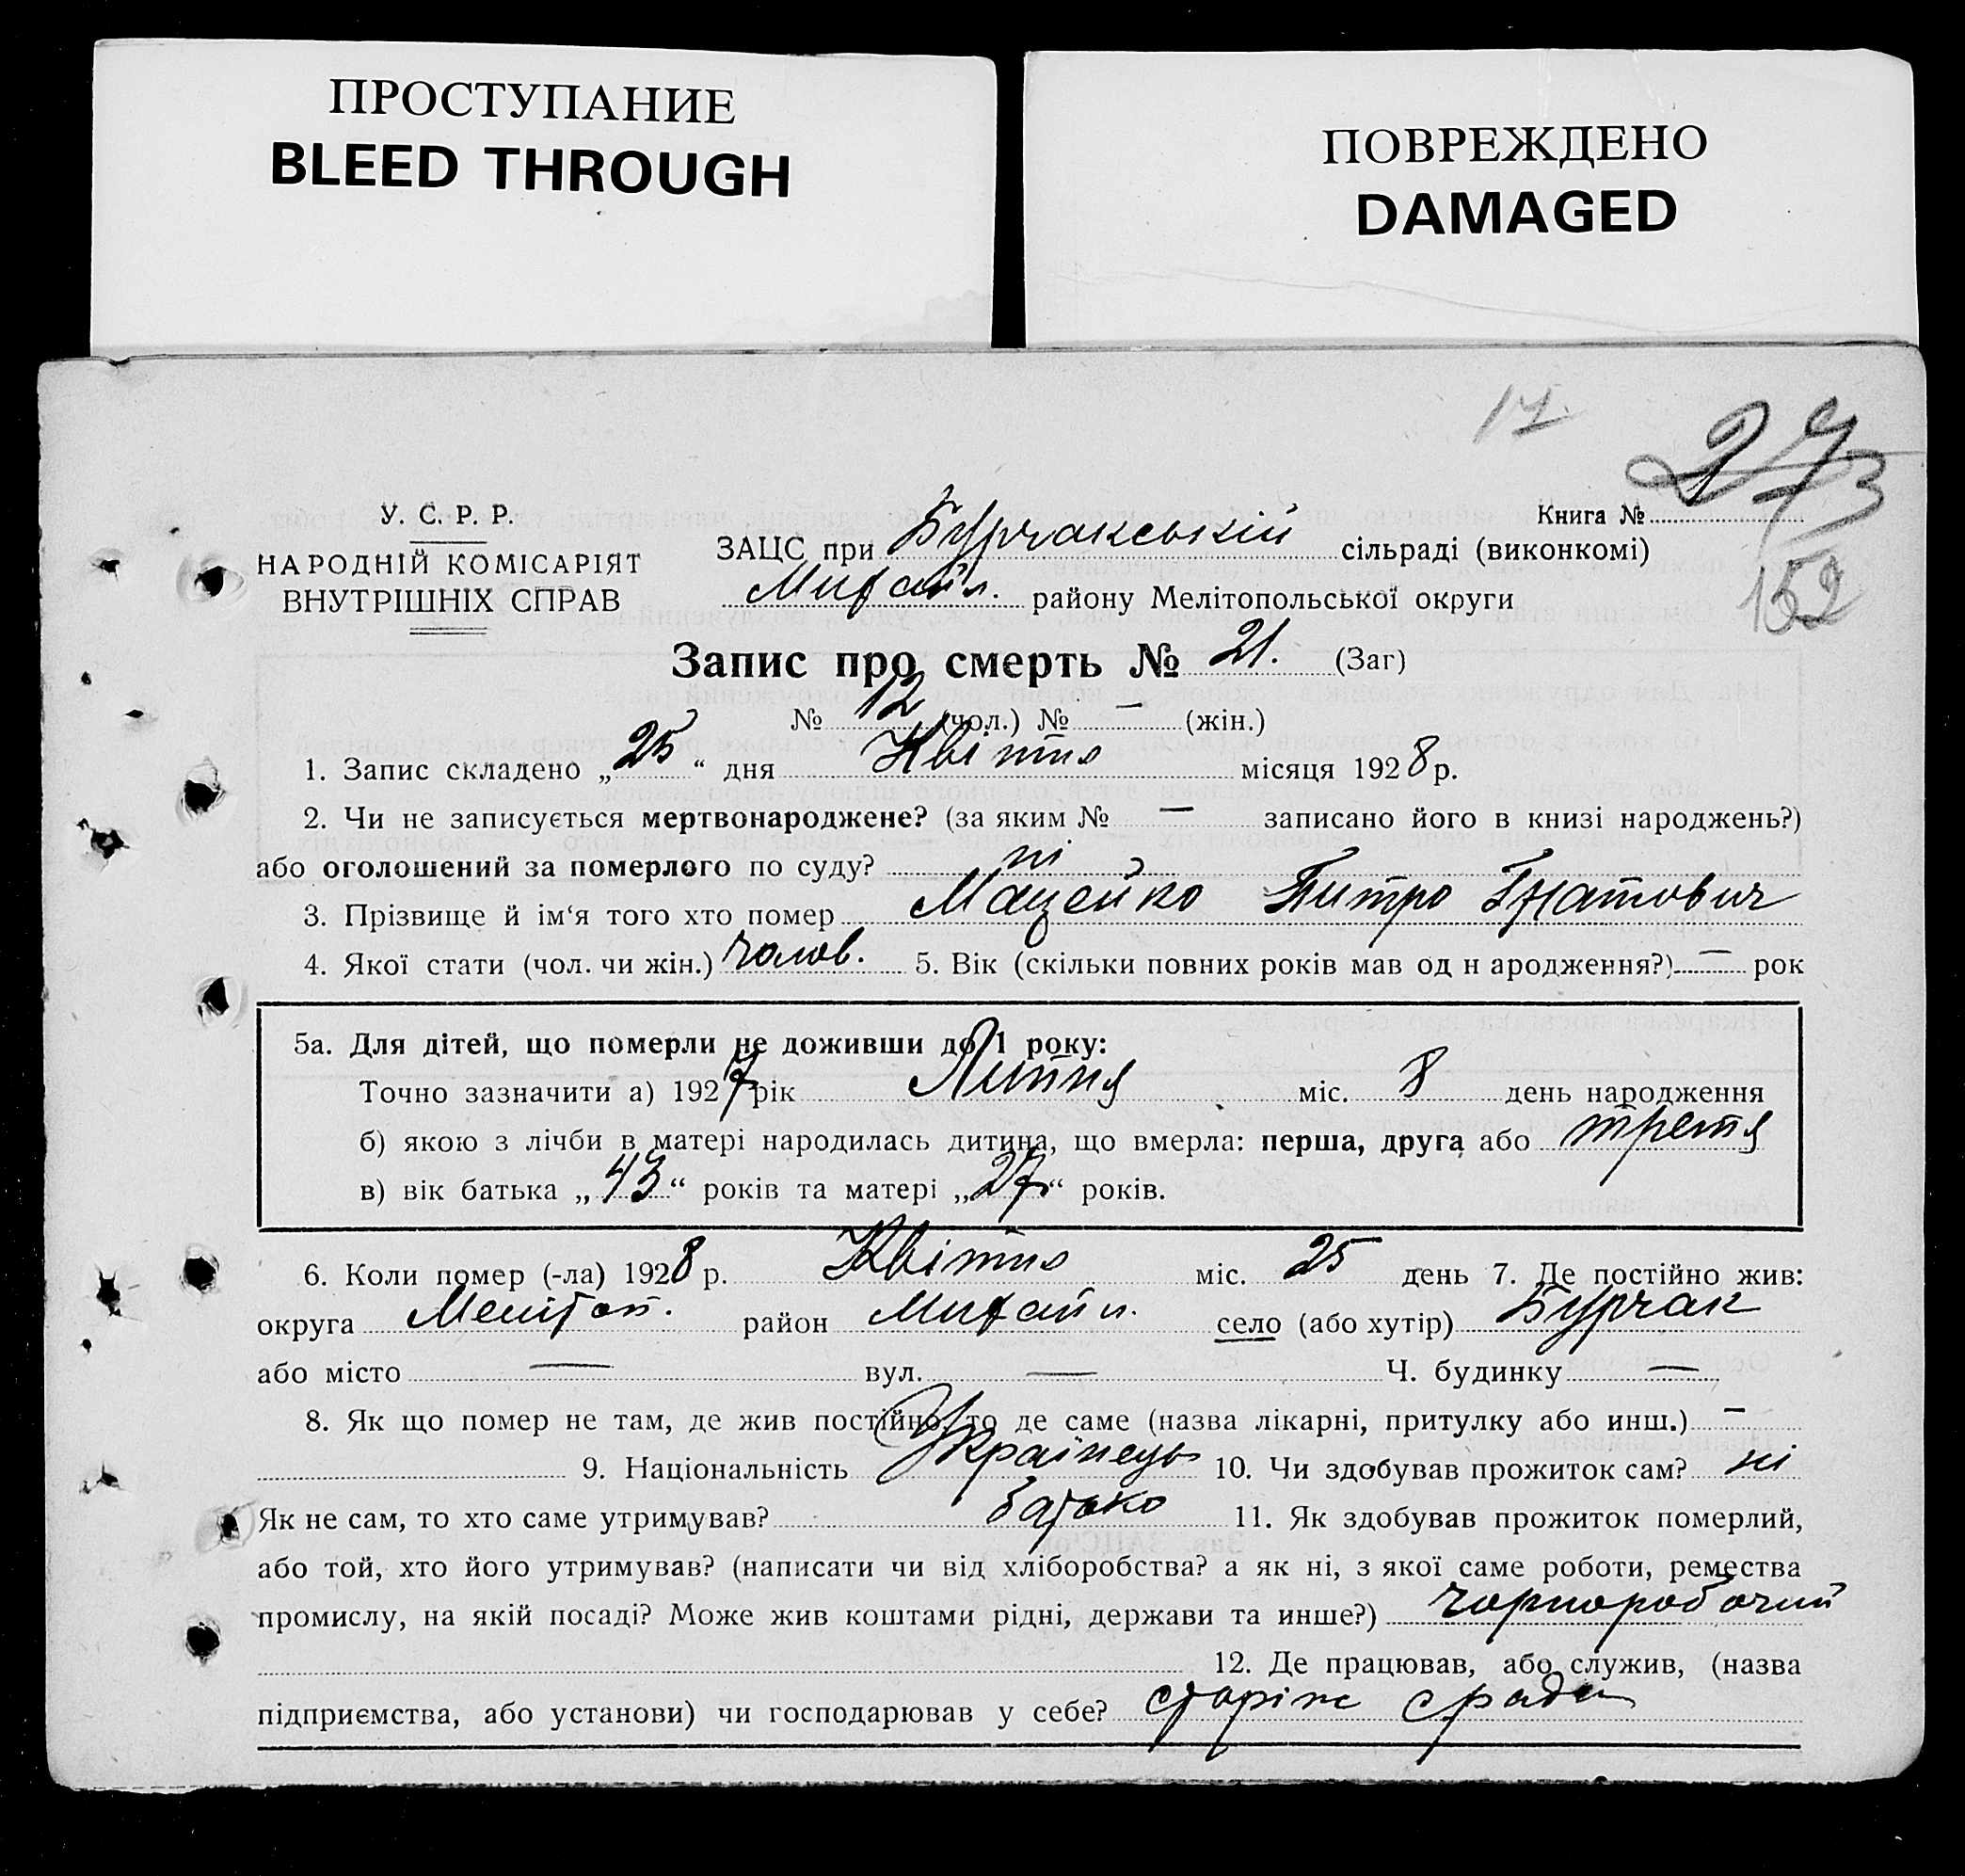 ПРОСТУПАНИЕ
BLEED THROUGH
ПОВРЕЖДЕНО
DAMAGED
17
27
152
У. С. Р. Р.
НАРОДНІЙ КОМІСАРІЯТ
ВНУТРІШНІХ СПРАВ
Книга №
ЗАЦС при Бурчакській сільраді (виконкомі)
Михайл. району Мелітопольської округи
Запис про смерть № 21. (Заг)
№ 12 (чол.) № — (жін.)
1. Запис складено „25“ дня Квітня місяця 1928 р.
2. Чи не записується мертвонароджене? (за яким № — записано його в книзі народжень?)
або оголошений за померлого по суду? ні
3. Прізвище й ім‘я того хто помер Мацейко Питро Гнатович
4. Якої стати (чол. чи жін.) Чолов. 5. Вік (скільки повних років мав од н ародження?) — рок
5а. Для дітей, що померли не доживши до 1 року:
Точно зазначити а) 1927 рік Липня міс. 8 день народження
б) якою з лічби в матері народилась дитина, що вмерла: перша, друга або третя
в) вік батька „43“ років та матері „27“ років.
6. Коли помер (-ла) 1928 р. Квітня міс. 25 день 7. Де постійно жив:
округа Меліт. район Михайл. село (або хутір) Бурчак
або місто — вул. — Ч. будинку —
8. Як що помер не там, де жив постійно, то де саме (назва лікарні, притулку або инш.) —
9. Національність Українець 10. Чи здобував прожиток сам? ні
Як не сам, то хто саме утримував? батько 11. Як здобував прожиток померлий,
або той, хто його утримував? (написати чи від хліборобства? а як ні, з якої саме роботи, ремества
промислу, на якій посаді? Може жив коштами рідні, держави та инше?) чорноробочий
12. Де працював, або служив, (назва
підприємства, або установи) чи господарював у себе? сторіж с/ради